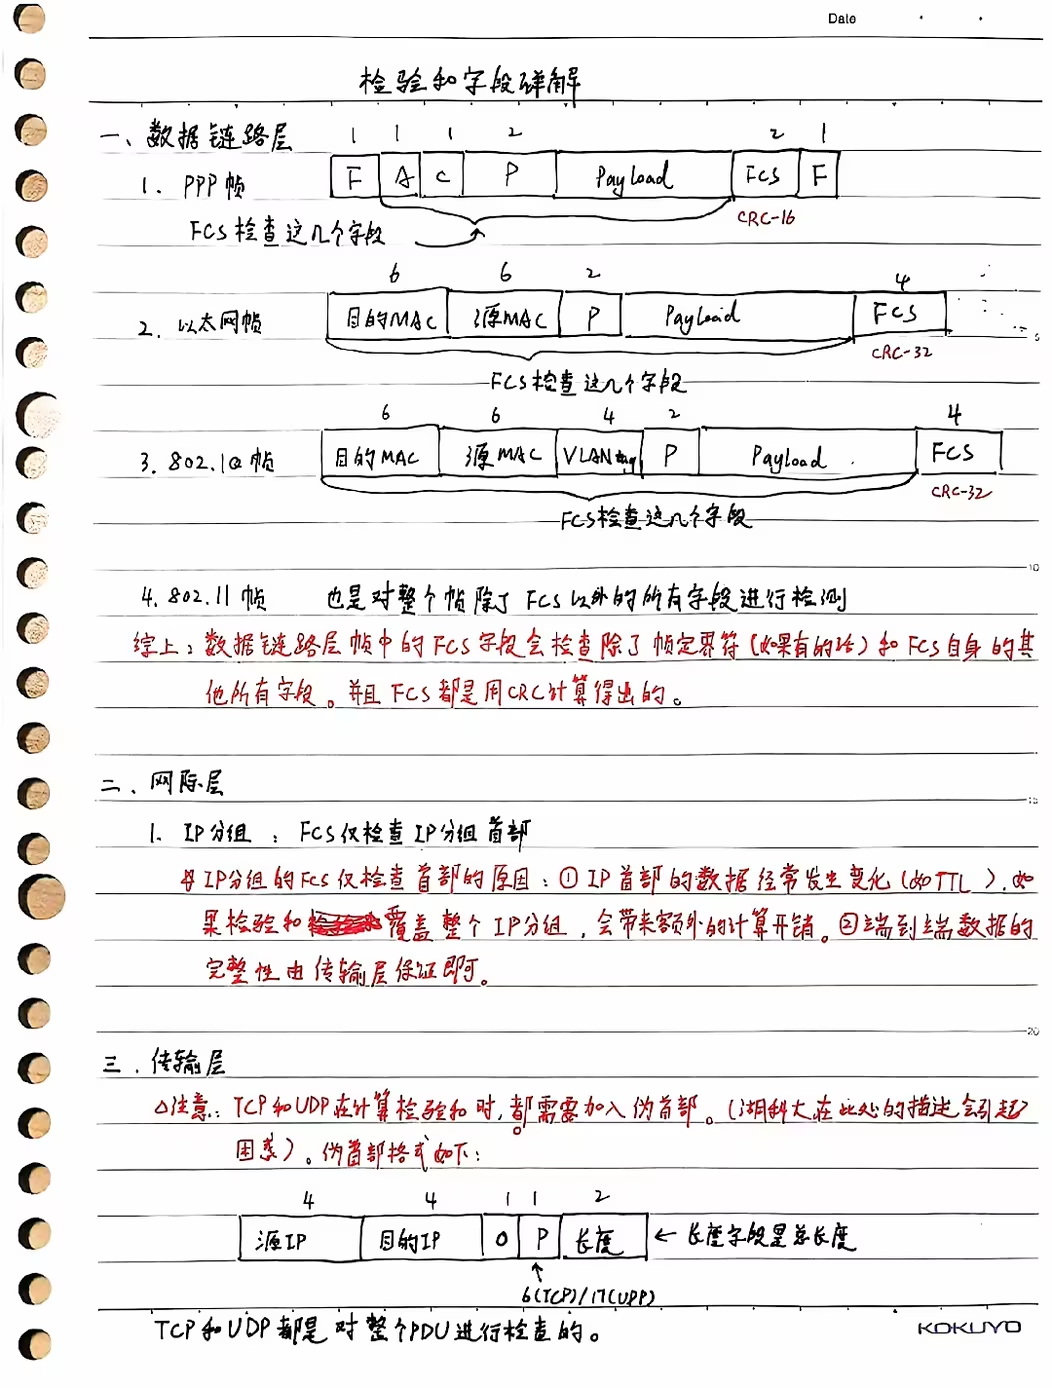 Date
检验和字段详解
一、数据链路层
1 1 1 2 2 1
1. PPP帧 F A C P Payload FCS F
CRC-16
FCS检查这几个字段
6 6 2 4
2. 以太网帧 目的MAC 源MAC P Payload FCS
CRC-32
FCS检查这几个字段
6 6 4 2 4
3. 802.1Q帧 目的MAC 源MAC VLAN tag P Payload FCS
CRC-32
FCS检查这几个字段
10
4. 802.11帧 也是对整个帧除了FCS以外的所有字段进行检测
综上：数据链路层帧中的FCS字段会检查除了帧定界符（如果有的话）和FCS自身的其
他所有字段。并且FCS都是用CRC计算得出的。
二、网际层
15
1. IP分组：FCS仅检查IP分组首部
IP分组的FCS仅检查首部的原因：①IP首部的数据经常发生变化（如TTL），如
果检验和覆盖整个IP分组，会带来额外的计算开销。②端到端数据的
完整性由传输层保证即可。
20
三、传输层
△注意：TCP和UDP在计算检验和时，都需要加入伪首部。（湖科大在此处的描述会引起
困惑）。伪首部格式如下：
4 4 1 1 2
源IP 目的IP 0 P 长度 ← 长度字段是总长度
6(TCP)/17(UPP)
TCP和UDP都是对整个PDU进行检查的。
KOKUYO